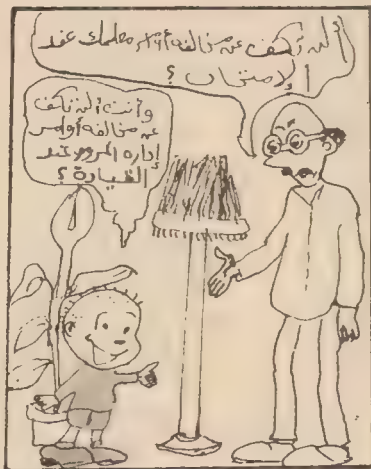 ألن تكف عن مخالفة أوامر معلمك عند
الإمتحان ؟
وأنت ألن تكف
عن مخالفة أوامر
إدارة المرور عند
القيادة ؟